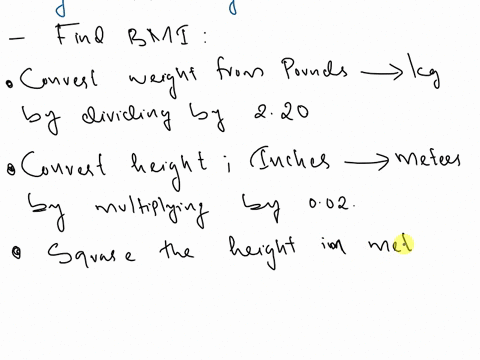 - Find BMI:
• Convert weight from Pounds → kg
by dividing by 2.20
• Convert height; Inches → meters
by multiplying by 0.02.
• Square the height in met